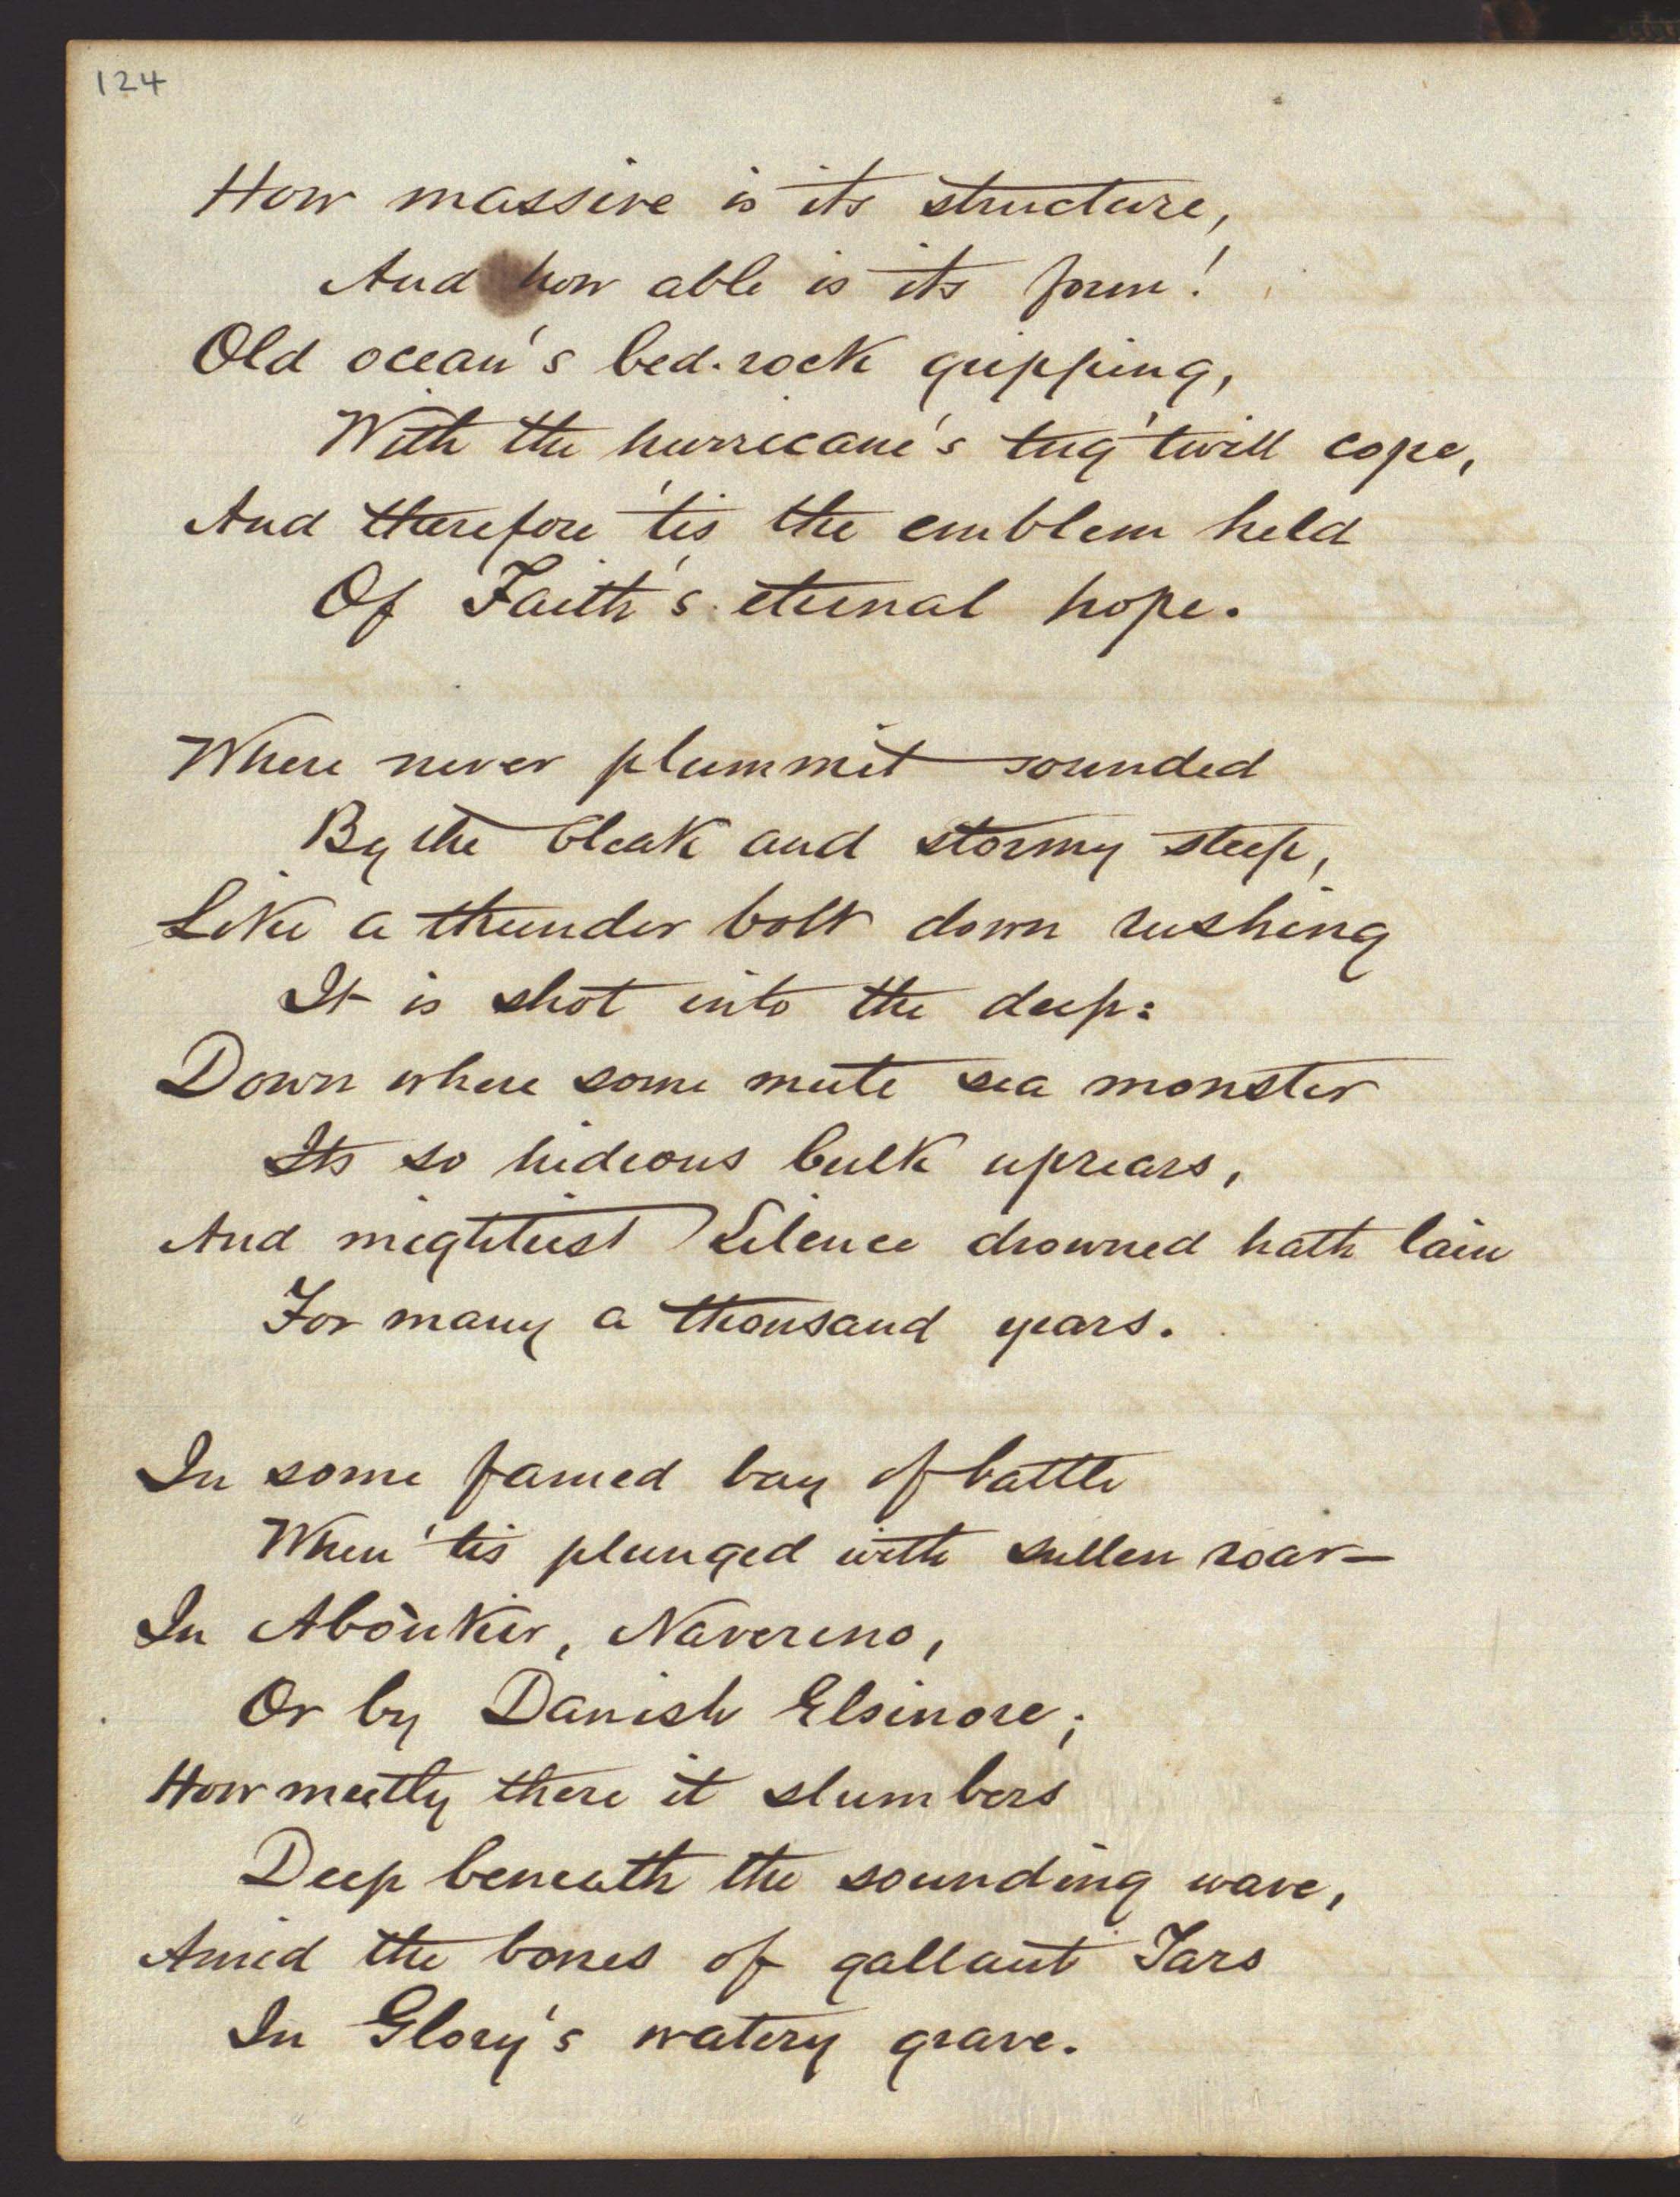 124
How massive is its structure,
And how able is its form!
Old ocean's bed-rock gripping,
With the hurricane's tug 'twill cope,
And therefore 'tis the emblem held
Of Faith's eternal hope.
Where never plummit sounded
By the bleak and stormy steep,
Like a thunder bolt down rushing
It is shot into the deep:
Down where some mute sea monster
Its so hideous bulk uprears,
And mightiest Silence drowned hath lain
For many a thousand years.
In some famed bay of battle
When 'tis plunged with sullen roar—
In Aboukir, Navereno,
Or by Danish Elsinore;
How meetly there it slumbers
Deep beneath the sounding wave,
Amid the bones of gallant Tars
In Glory's watery grave.